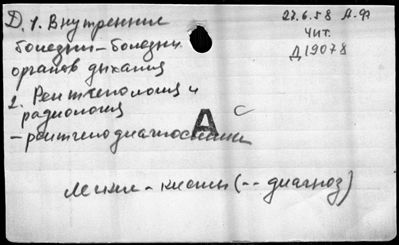 Д. 1. Внутренние
болезни – болезни
органов дыхания
2. Рентгенология и
радиология
– рентгенодиагностики
27.6.58 А.Ф
Чит.
Д19078
А
С
кисты (-- диагноз)